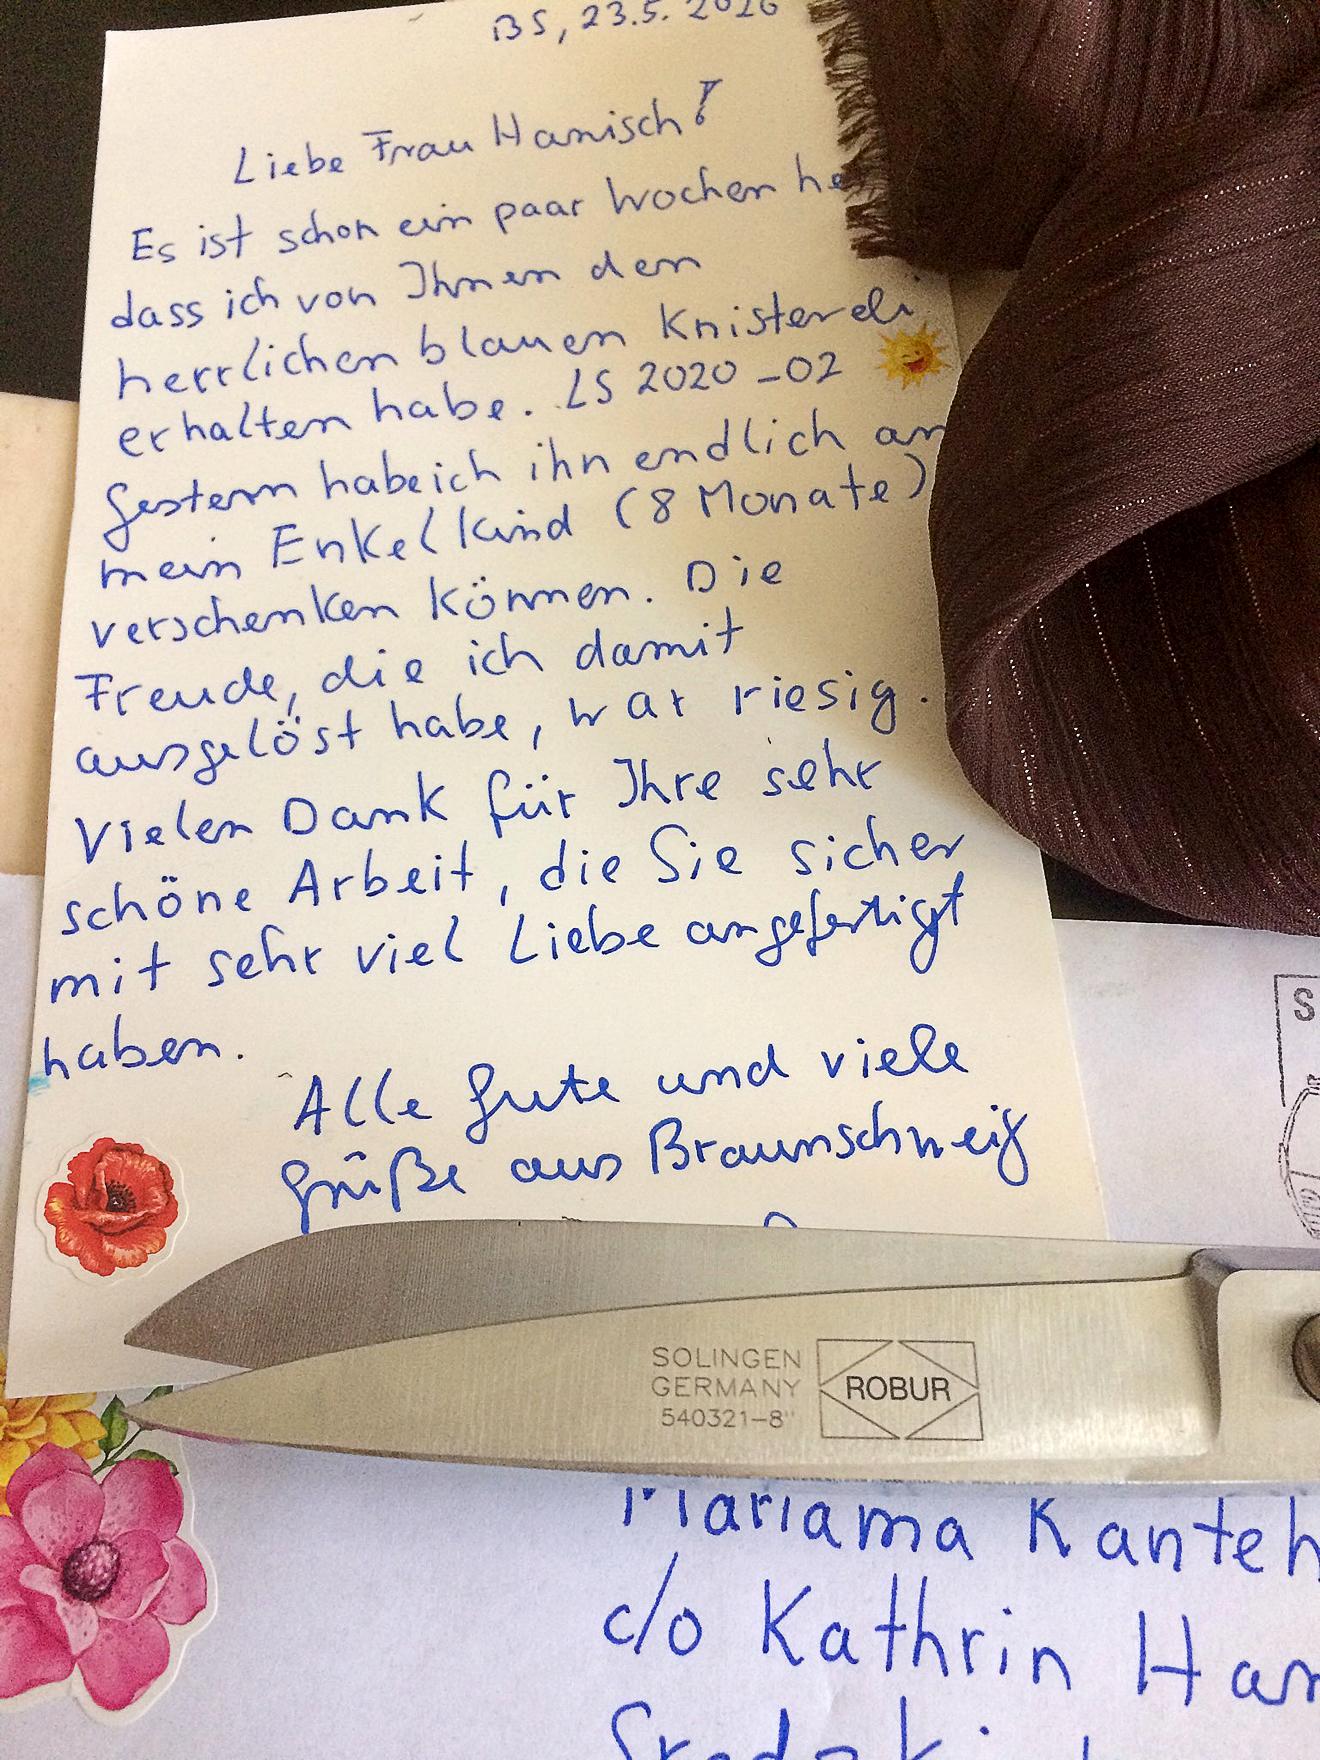 BS, 23.5. 2020
Liebe Frau Hanisch!
Es ist schon ein paar Wochen he
dass ich von Ihnen den
herrlichen blauen Knisterdi
erhalten habe. LS 2020-02
Gestern habe ich ihn endlich an
mein Enkelkind (8 Monate)
verschenken können. Die
Freude, die ich damit
ausgelöst habe, war riesig.
Vielen Dank für Ihre sehr
schöne Arbeit, die Sie sicher
mit sehr viel Liebe angefertigt
haben.
Alle Gute und viele
Grüße aus Braunschweig
SOLINGEN
GERMANY
540321-8"
ROBUR
S
Mariama Kanteh
c/o Kathrin Han